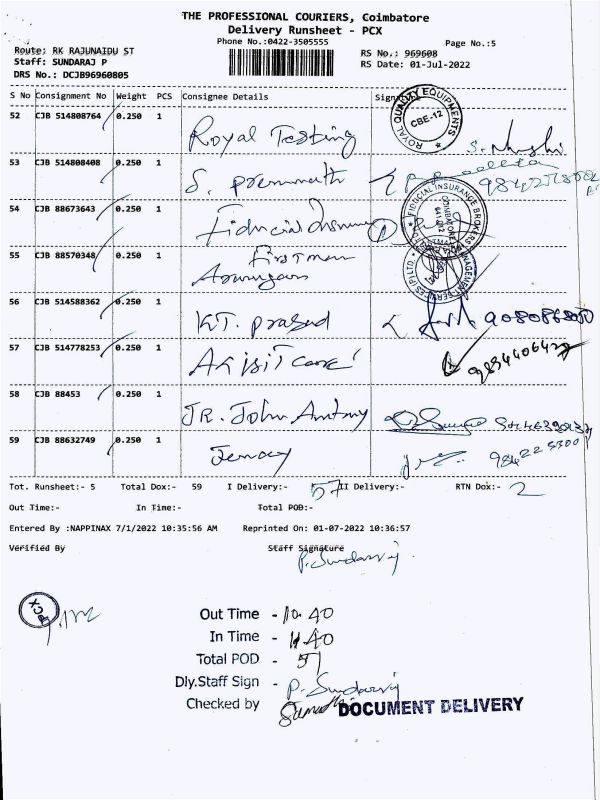 THE PROFESSIONAL COURIERS, Coimbatore
Delivery Runsheet - PCX
Phone No.:0422-3505555
Page No.:5
Route: RK RAJUNAIDU ST
RS No.: 969608
Staff: SUNDARAJ P
RS Date: 01-Jul-2022
DRS No.: DCJB96960805
S No Consignment No Weight PCS Consignee Details
52 CJB 514808764 0.250 1 Royal Testing
ROYAL QUALITY EQUIPMENTS CBE-12
53 CJB 514808408 0.250 1 S.
54 CJB 88673643 0.250 1
FIDUCIAL INSURANCE BROKERS
55 CJB 88570348 0.250 1
56 CJB 514588362 0.250 1 KT. prasad
57 CJB 514778253 0.250 1
58 CJB 88453 0.250 1 JR. John Antony
59 CJB 88632749 0.250 1
Tot. Runsheet:- 5 Total Dox:- 59 I Delivery:- 57 II Delivery:- RTN Dox:- 2
Out Time:- In Time:- Total POD:-
Entered By :NAPPINAX 7/1/2022 10:35:56 AM Reprinted On: 01-07-2022 10:36:57
Verified By Staff Signature
P. Sundarraj
Out Time - 10.40
In Time -
Total POD -
Dly.Staff Sign - P. Sundarraj
Checked by
DOCUMENT DELIVERY